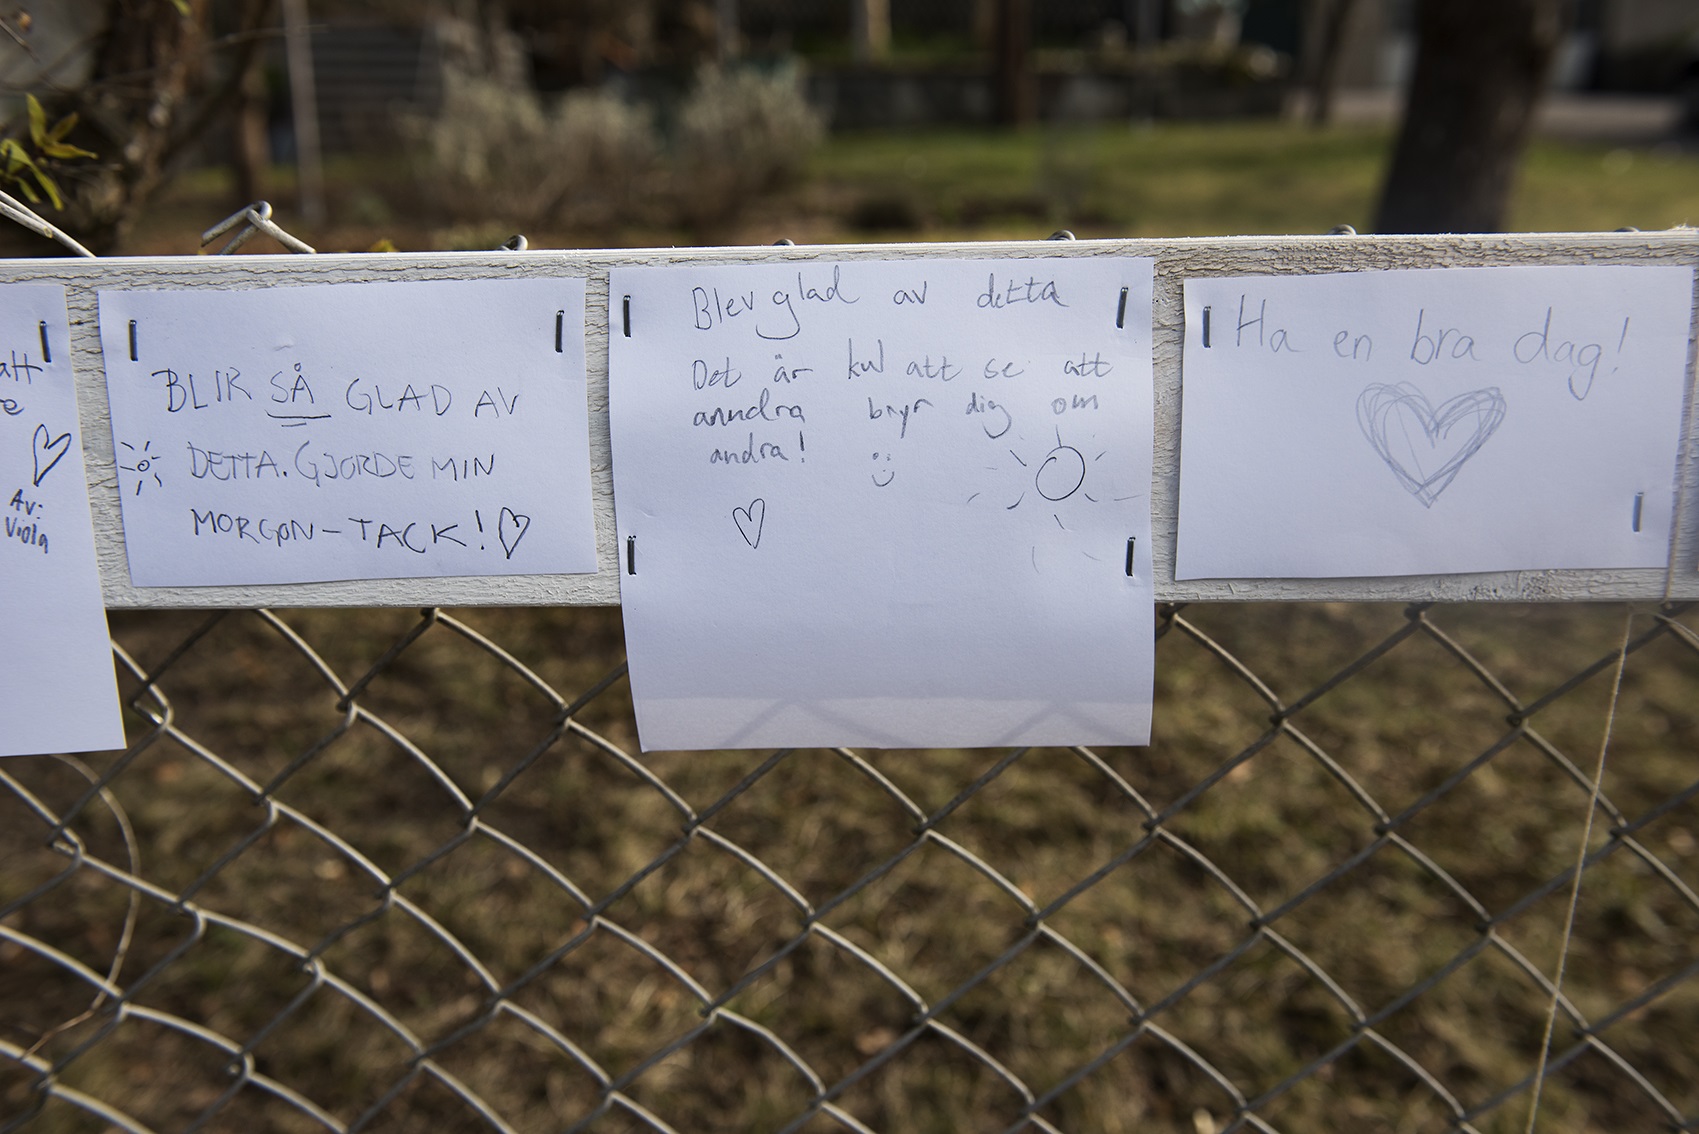 att
re
Av:
Viola
BLIR SÅ GLAD AV
DETTA. GJORDE MIN
MORGON – TACK!
Blev glad av detta
Det är kul att se att
anndra bryr dig om
andra!
Ha en bra dag!